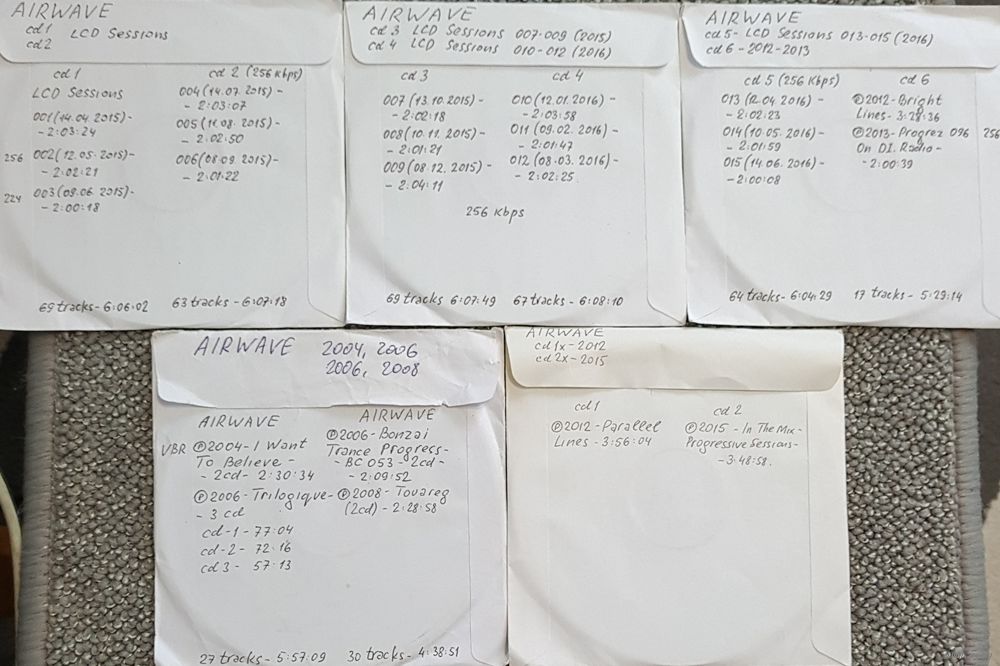 AIRWAVE
cd1 LCD Sessions
cd2
cd 1
LCD Sessions
001(14.04.2015)-
- 2:03:24
256 002(12.05.2015)-
- 2:02:21
224 003(09.06.2015)-
- 2:00:18
69 tracks - 6:06:02
cd 2 (256 Kbps)
004(14.07.2015)-
- 2:03:07
005(11.08.2015)-
- 2:02:50
006(08.09.2015)-
- 2:01:22
63 tracks - 6:07:18
AIRWAVE
cd 3 LCD Sessions 007-009 (2015)
cd 4 LCD Sessions 010-012 (2016)
cd 3
007(13.10.2015)-
- 2:02:18
008(10.11.2015)-
- 2:01:21
009(08.12.2015)-
- 2:04:11
cd 4
010(12.01.2016)-
- 2:03:58
011(09.02.2016)-
- 2:01:47
012(08.03.2016)-
- 2:02:25
256 Kbps
69 tracks 6:07:49
67 tracks - 6:08:10
AIRWAVE
cd 5- LCD Sessions 013-015 (2016)
cd 6 - 2012-2013
cd 5 (256 Kbps)
013(12.04.2016)-
- 2:02:23
014(10.05.2016)-
- 2:01:59
015(14.06.2016)-
- 2:00:08
64 tracks - 6:04:29
cd 6
℗2012-Bright
Lines - 3:28:36
℗2013-Progrez 096 256
On D.I. Radio -
- 2:00:39
17 tracks - 5:29:14
AIRWAVE 2004, 2006
2006, 2008
AIRWAVE
VBR ℗2004-I Want
To Believe -
- 2cd - 2:30:34
℗2006-Trilogique-
- 3 cd
cd-1 - 77:04
cd-2 - 72:16
cd 3 - 57:13
27 tracks - 5:57:09
AIRWAVE
℗2006-Bonzai
Trance Progress-
- BC 053 - 2cd -
- 2:09:52
℗2008-Touareg
(2cd) - 2:28:58
30 tracks - 4:38:51
AIRWAVE
cd 1x - 2012
cd 2x - 2015
cd 1
℗2012-Parallel
Lines - 3:56:04
cd 2
℗2015 - In The Mix -
Progressive Sessions -
- 3:48:58.